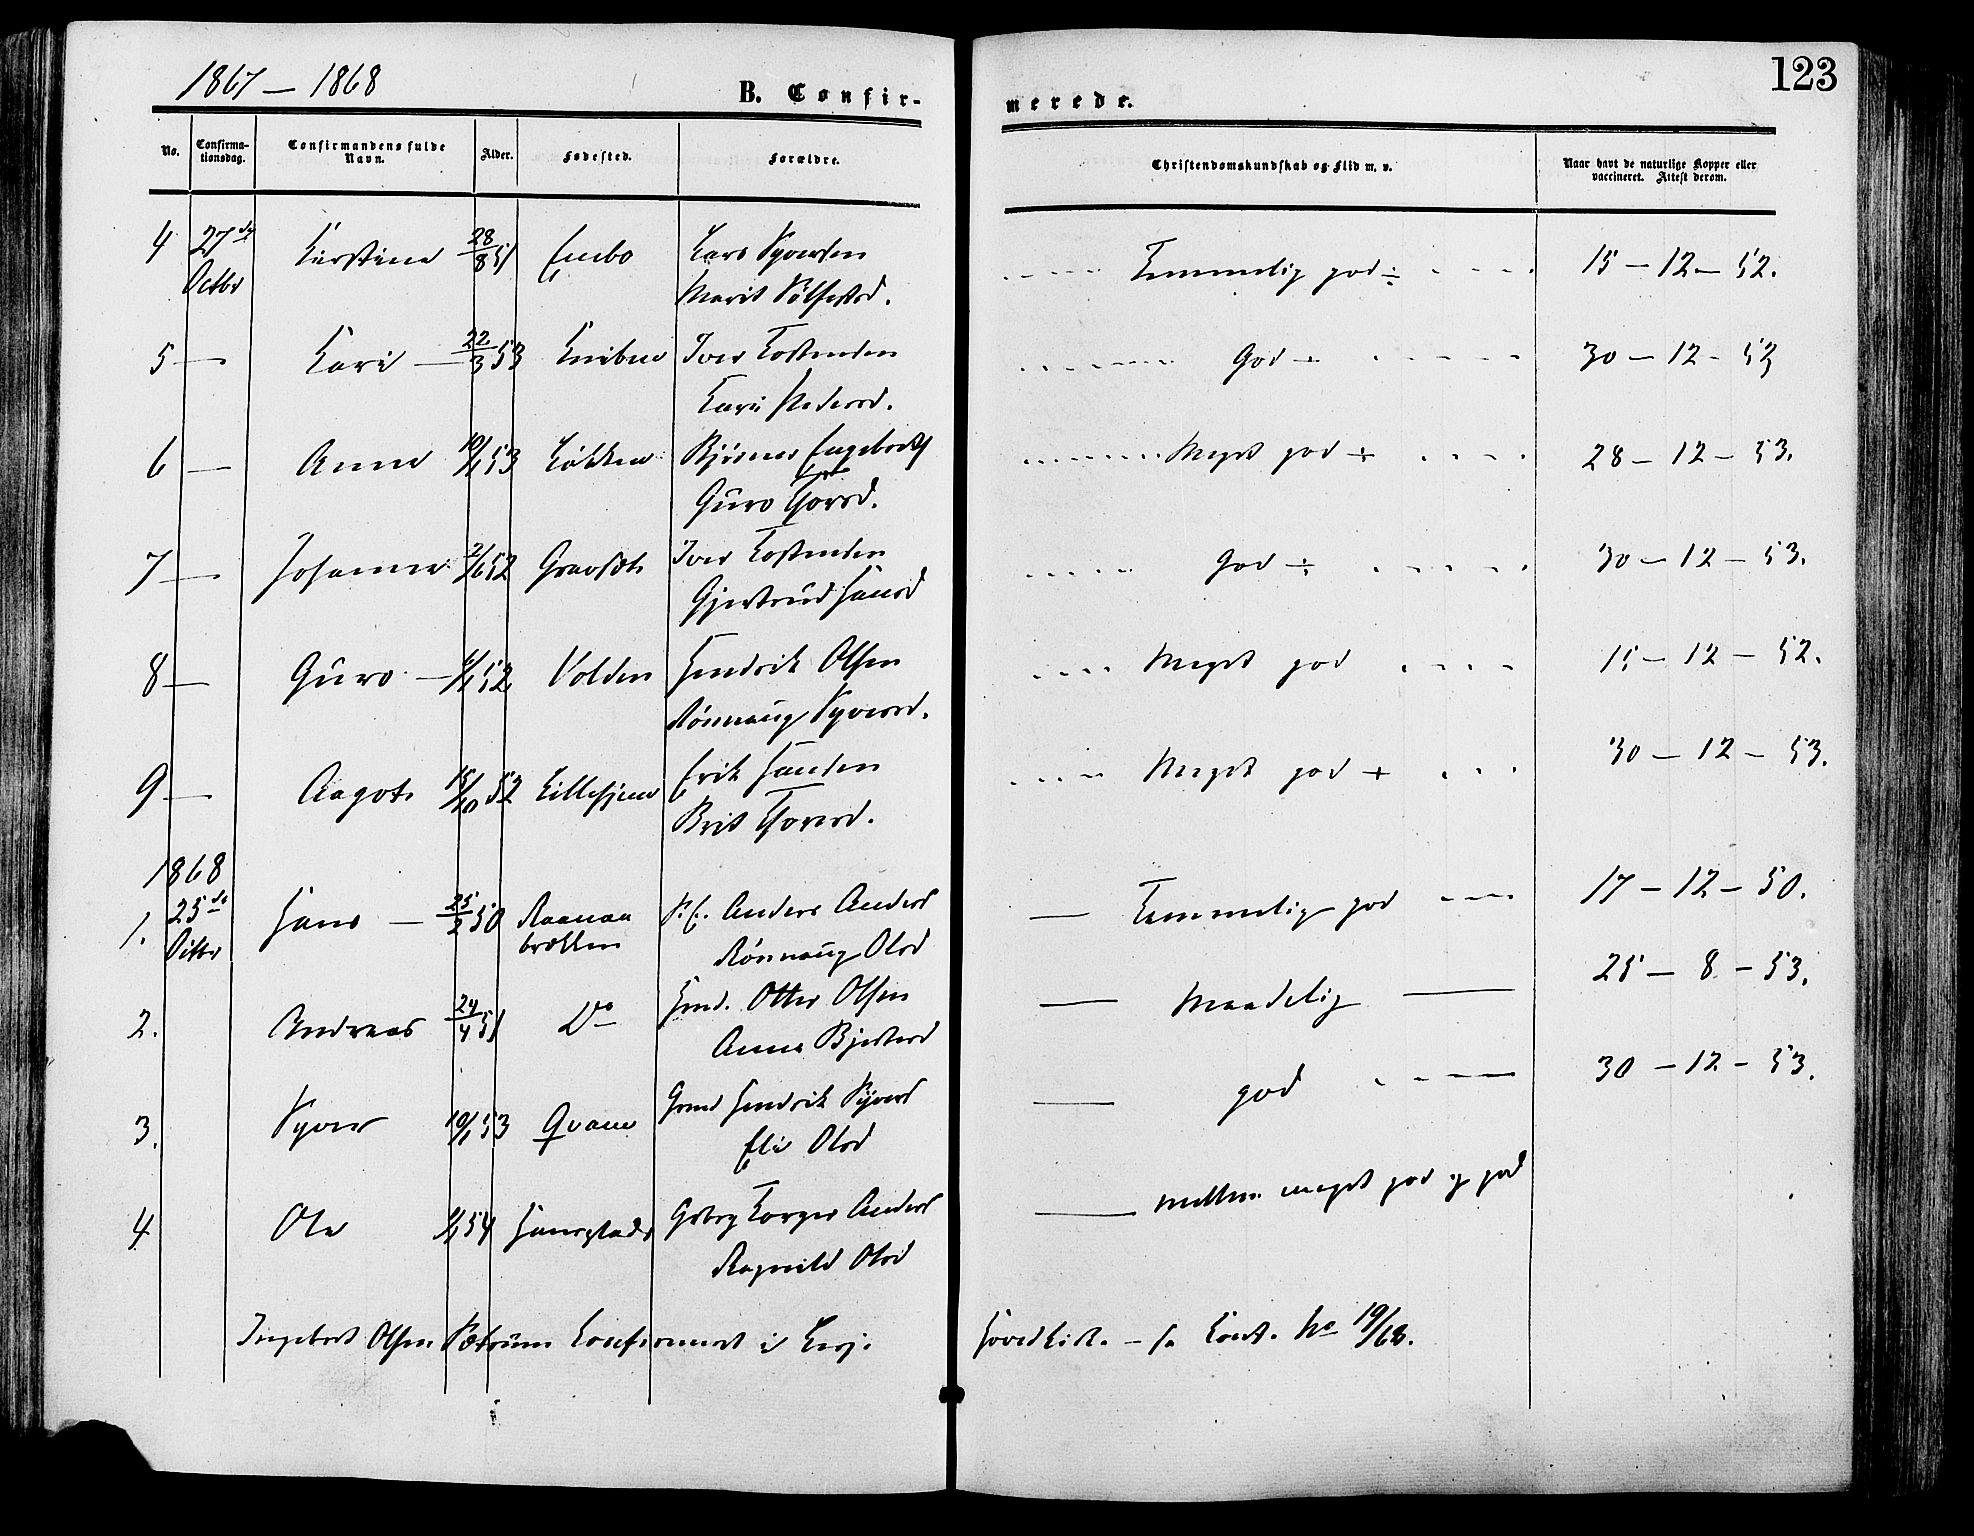 1867 — 1868
B. Confir-
merede.
123
No.
Confirma-
tionsdag.
Confirmandens fulde
Navn.
Alder.
Fødested.
Forældre.
Christendomskundskab og Flid m. v.
Naar havt de naturlige Kopper eller
vaccineret. Attest derom.
4 27de Octbr Kirstine 28/8 51 Embo Lars Syversen
Marit
Temmelig god ÷ 15 — 12 — 52.
5 — Kari — 22/3 53 Iver Tostensen
Kari Pedersd.
God ÷ 30 — 12 — 53
6 — Anne 10/1 53 Løkken Bjørner Engebrets
Guro Thorsd.
Meget god ÷ 28 — 12 — 53.
7 — Johanne 2/6 52 Iver Tostensen
Gjertrud Hansd
God ÷ 30 — 12 — 53.
8 — Guro — 52 Volden Hendrik Olsen
Rønnaug Syversd.
Meget god 15 — 12 — 52.
9 — Aagot 15/10 52 Lillehjem Erik Hansen
Brit Thorsd.
Meget god + 30 — 12 — 53.
1868
1. 25de Octbr Hans — 25/2 50 Raanaa
brækken
Anders Anders
Rønnaug Olsd
— Temmelig god 17 — 12 — 50.
2. Andreas 24/4 51 Do Otter Olsen
Anne
— Maadelig — 25 — 8 — 53.
3. Syver 10/1 53 Qvam Hendrik Syvers
Eli Olsd
— god 30 — 12 — 53.
4 Ole 54 Hansplads Torger Anders
Ragnild Olsd
— mellem meget god og god
Ingebret Olsen Sætrum Confirmeret i
Hovedkirk. — No 19/68.